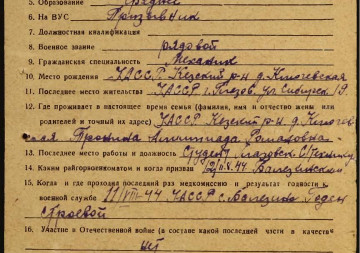 5. Образование Среднее
6. На ВУС Призывник
7. Должностная квалификация
8. Военное звание рядовой
9. Гражданская специальность Механик
10. Место рождения УАССР Кезский р-н д. Ключевская
11. Последнее место жительства УАССР г. Глазов ул Сибирск 19.
12. Где проживает в настоящее время семья (фамилия, имя и отчество жены или
родителей и точный их адрес) УАССР Кезский р-н д. Ключев
ская Пронина Романовна
13. Последнее место работы и должность Студент Глазовск
14. Каким райгорвоенкоматом и когда призван Балезинский
15. Когда и где проходил последний раз медкомиссию и результат годности к
военной службе 11/VIII-44 УАССР с. Балезино Годен
строевой
16. Участие в Отечественной войне (в составе какой последней части и в качестве
нет